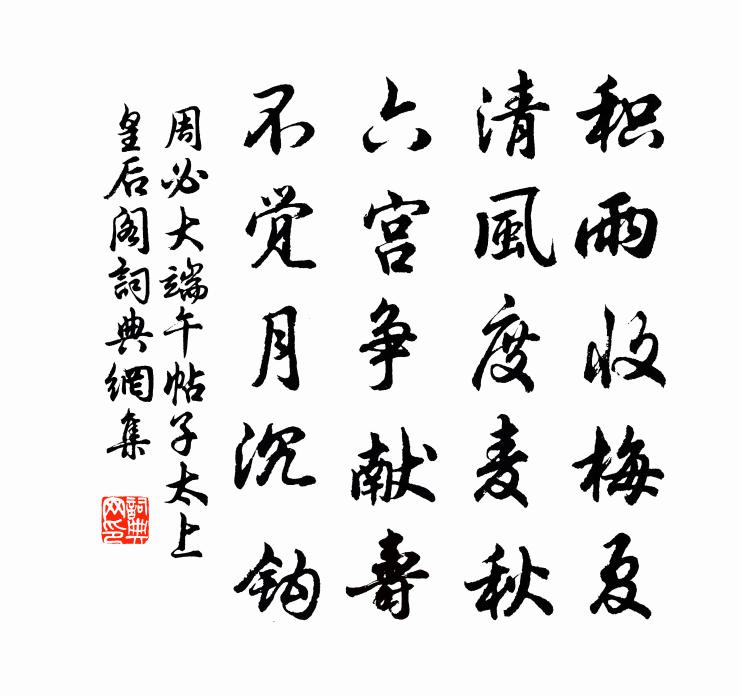 积雨收梅夏
清風度麦秋
六宫争献壽
不觉月沉钩
周必大端午帖子太上
皇后阁詞典網集
詞典
网印